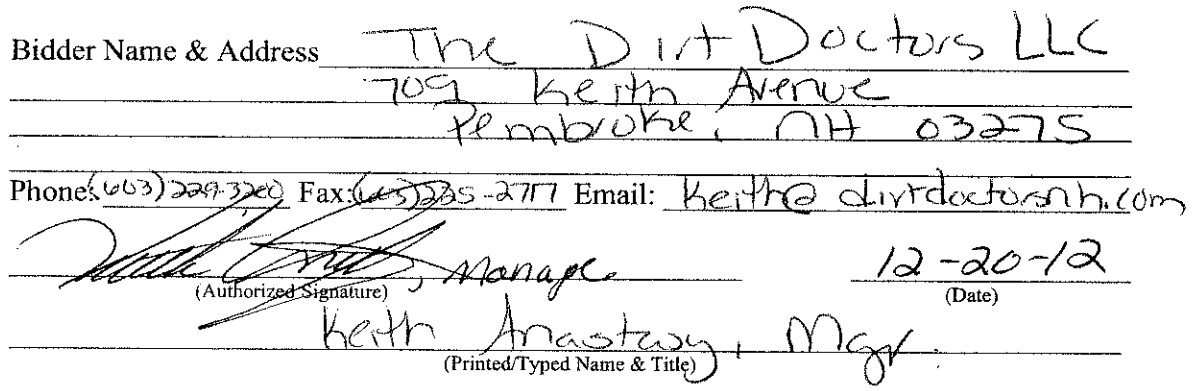 Bidder Name & Address The Dirt Doctors LLC
709 Keith Avenue
Pembroke, NH 03275
Phone: (603) 229-3200 Fax: (603) 225-2717 Email: Keith@dirtdoctorsnh.com
, Manager 12-20-12
(Authorized Signature) (Date)
Keith Anastasy, Mgr.
(Printed/Typed Name & Title)